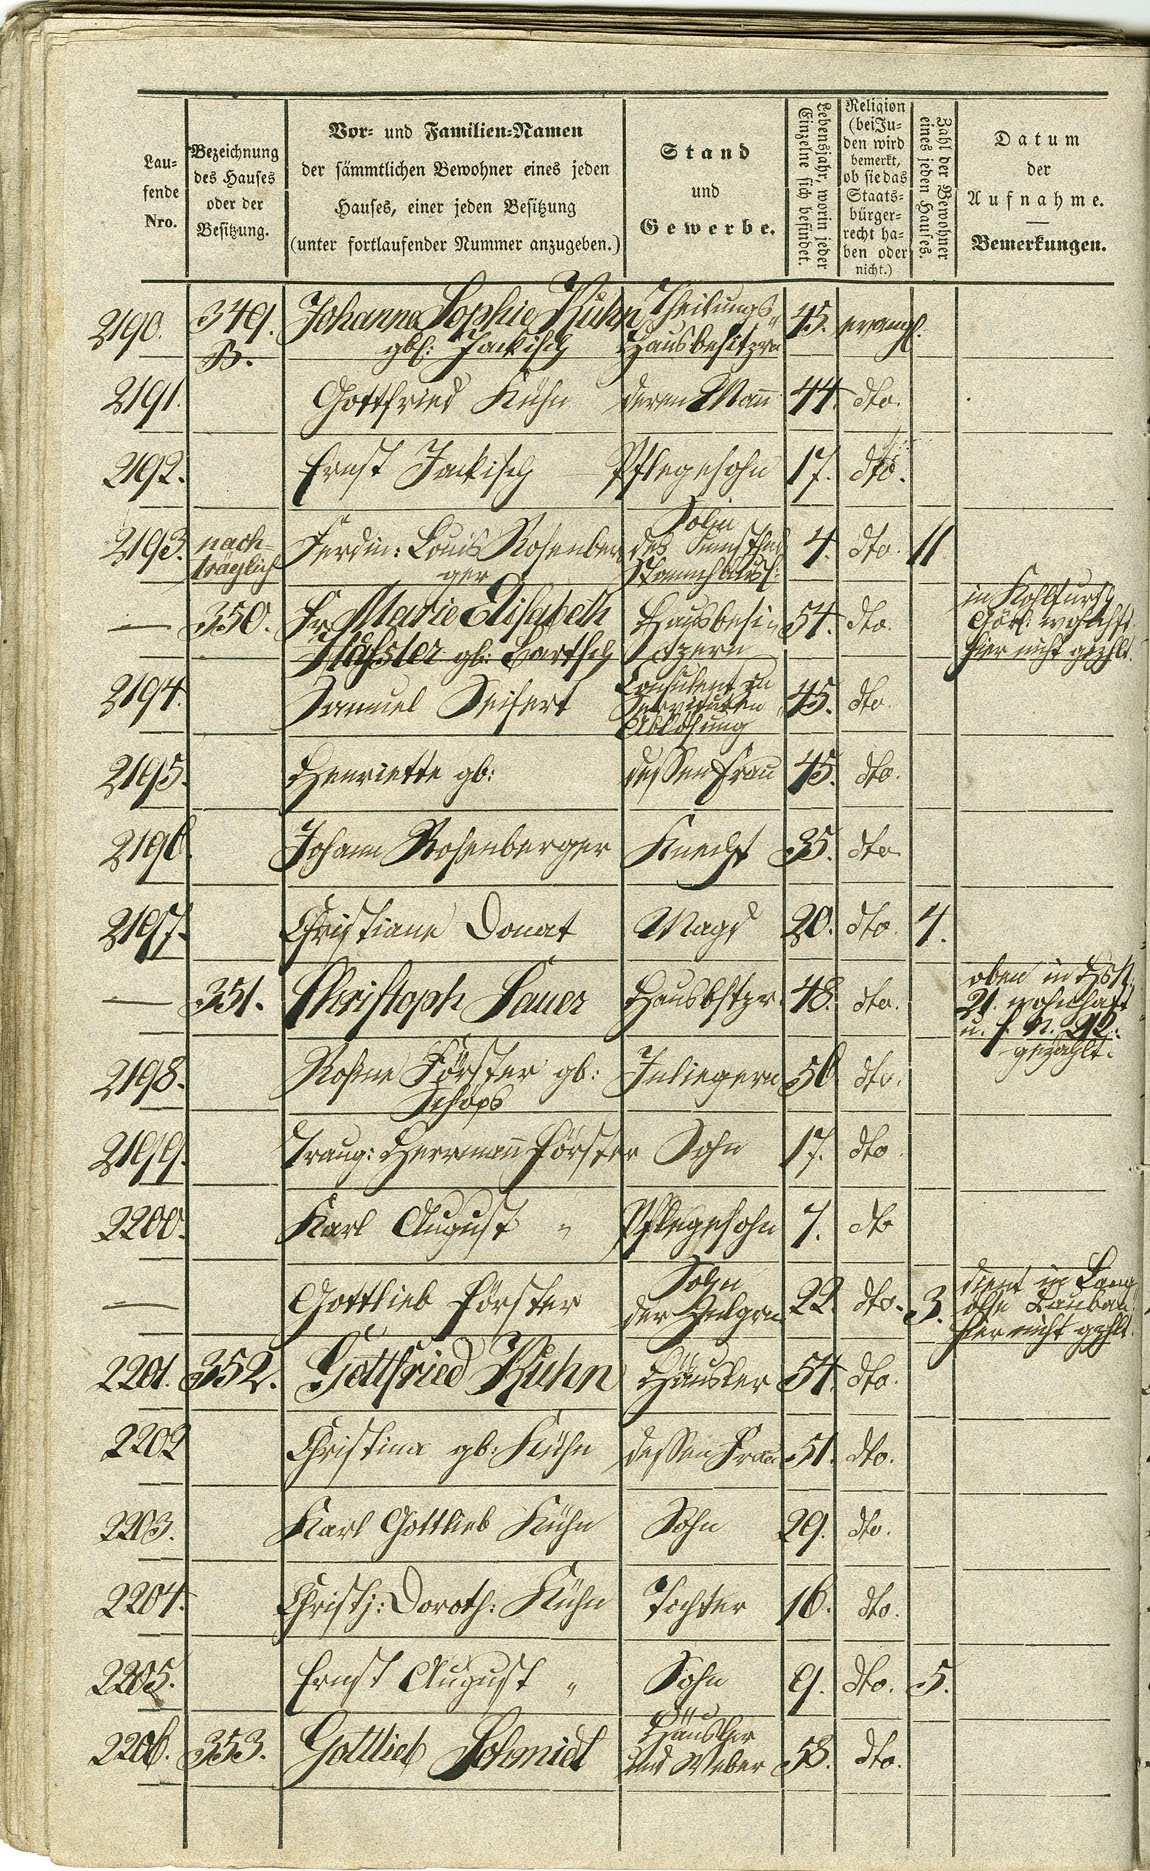 Lau-
fende
Nro.
Bezeichnung
des Hauses
oder der
Besitzung.
Vor- und Familien-Namen
der sämmtlichen Bewohner eines jeden
Hauses, einer jeden Besitzung
(unter fortlaufender Nummer anzugeben.)
Stand
und
Gewerbe.
Lebensjahr, worin jeder
Einzelne sich befindet.
Religion
(bei Ju-
den wird
bemerkt,
ob sie das
Staats-
bürger-
recht ha-
ben oder
nicht.)
Zahl der Bewohner
eines jeden Hauses.
Datum
der
Aufnahme.
Bemerkungen.
2190. 349. Johanne Sophie Kuhn Theilungs- 45. evangl.
B. gb: Jackisch Hausbesitzrn
2191. Gottfried Kühn deren Mann 44. dto.
2192. Ernst Jackisch Pflegesohn 17. dto.
2193. nach- Ferdin: Louis Rosenber Sohn des 4. dto. 11
träglich ger
— 350. Fr Marie Elisabeth Hausbesi 54. dto. in Kohlfurth
gb: Bartsch tzern wohnhft
hier nicht gezhlt.
2194. Samuel Seifert Consulent in 45. dto.
Servituten
Ablösung
2195. Henriette gb: dessen Frau 45. dto.
2196. Johann Rosenberger Knecht 35. dto.
2197. Christiane Donat Magd 20. dto. 4.
— 351. Christoph Lauer Hausbstzr. 48. dto. oben in
21. wohnhaft
u. s. N. 92.
gezählt.
2198. Rosine Förster gb: Inliegern 56 dto.
Schöps
2199. Traug: Herrmann Förster Sohn 17. dto.
2200. Karl August " Pflegesohn 7. dto
— Gottlieb Förster Sohn 22. dto. 3. dient in Lang
der Inlgrn öls Lauban
hier nicht gzhlt.
2201. 352. Gottfried Kuhn Häusler 54. dto.
2202 Christina gb: Kühn dessen Frau 51. dto.
2203. Karl Gottlieb Kühn Sohn 29. dto.
2204. Christj: Doroth: Kühn Tochter 16. dto.
2205. Ernst August " Sohn 9. dto. 5.
2206. 353. Gottlieb Schmidt Häusler 53. dto.
und Weber